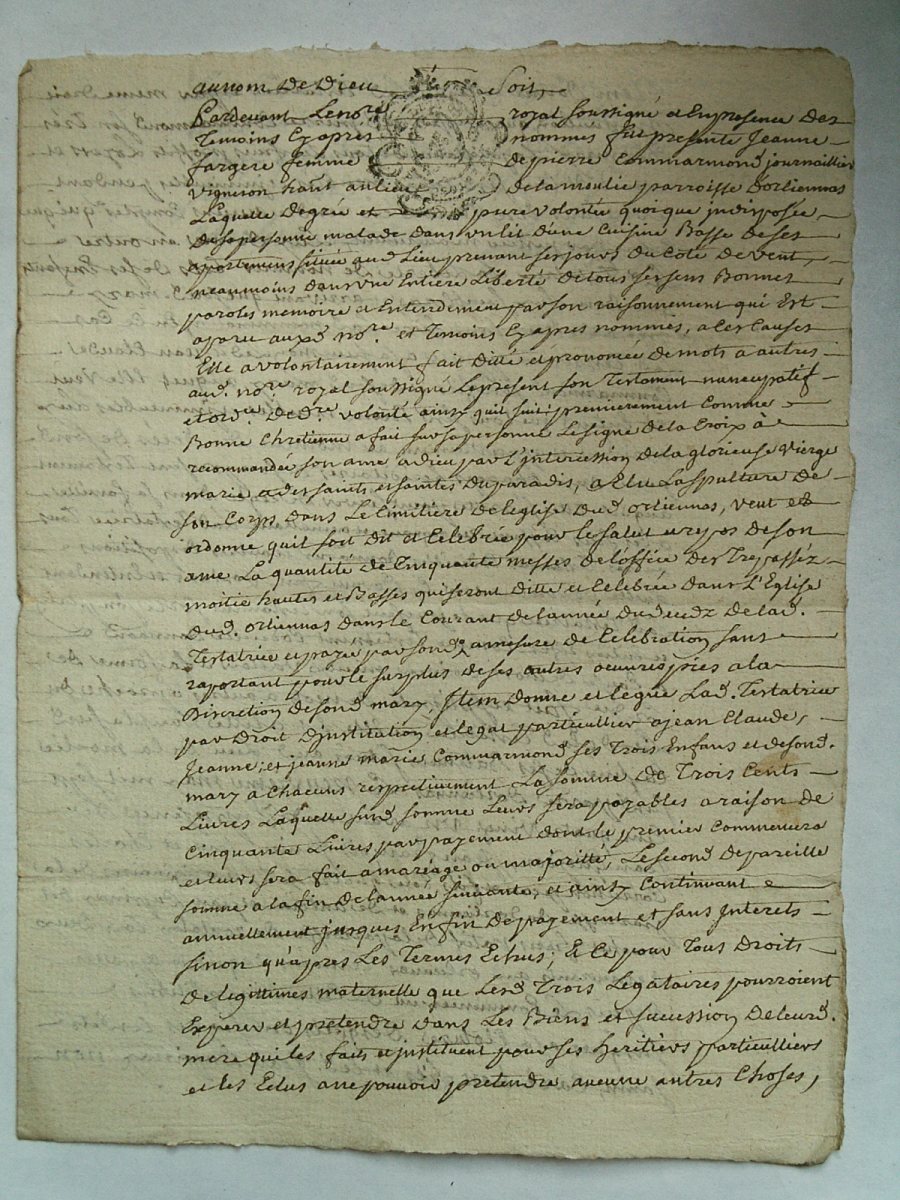 au nom De Dieu Soit,
Pardevant Le no.re royal soussigné et En presence Des
Temoins Cy apres nommes fut presente Jeanne
fargere femme De pierre Commarmond journaillier
vigneron hant au lieu de la moulie parroisse d'orliennas
Laquelle De gré et pure volontée quoi que jndisposée
De sa personne malade dans un lit d'une Cuisine Basse De ses
apartemens située aud. Lieu prenant ses jours du Coté de vent,
neaumoins dans une Entiere Liberté de tous ses sens Bonnes
paroles memoire et Entendement par son raisonnement qui Est
aparu auxd. no.re et Temoins Cy apres nommés, a Ces Causes
Elle a volontairement fait ditté et prononcée de mots a autres
aud. no.re royal soussigné Le present son Testament nuncupatif
et ord.ce De d.re volonté ainsy quil suit; premierement Comme
Bonne Chretienne a fait sur sa personne Le signe de la Croix à
recommandée son ame a dieu par L'intercession de la glorieuse vierge
marie et des saints et saintes du paradis, a Elu La spulture De
son Corps dans Le Cimitiere de l'eglise Dud. orliennas, veut et
ordonne quil soit dit et Celebrée pour le salut et repos de son
ame La quantité de Cinquante messes de l'office des Trepasséz
moitié hautes et Basses qui seront ditte et Celebrée dans L'Eglise
Dud. orliennas dans le Courant de lannée du deedz De lad.
Testatrice et payée par sond. a mesure de Celebration sans
raportant pour le surplus de ses autres oeuvres pies a la
Discretion de sond. mary, Jtem donne et legue Lad. Testatrice
par Droit d'jnstitution et legat particullier a jean Claude,
Jeanne, et jeanne marie Commarmond ses Trois Enfans et de sond.
mary a Chacuns respectivement La somme De Trois Cents
Livres Laquelle susd. somme Leurs sera payables a raison de
Cinquante Livres par payement dont le premier Commencera
et leurs sera fait a mariage ou majoritté, Le second De pareille
somme a la fin de lannée suivante, et ainsy Continuant
annuellement jusques En fin De payement et sans Jnterets
sinon qu'apres Les Termes Echus; Et Ce pour Tous Droits
De legittimes maternelle que Lesd. Trois Legataires pourroient
Esperer et pretendre dans Les Biens et sucession De leurd.
mere qui les fait et jnstituent pour ses heritiers particulliers
et les Eclus a ne pouvoir pretendre aucune autres Choses,